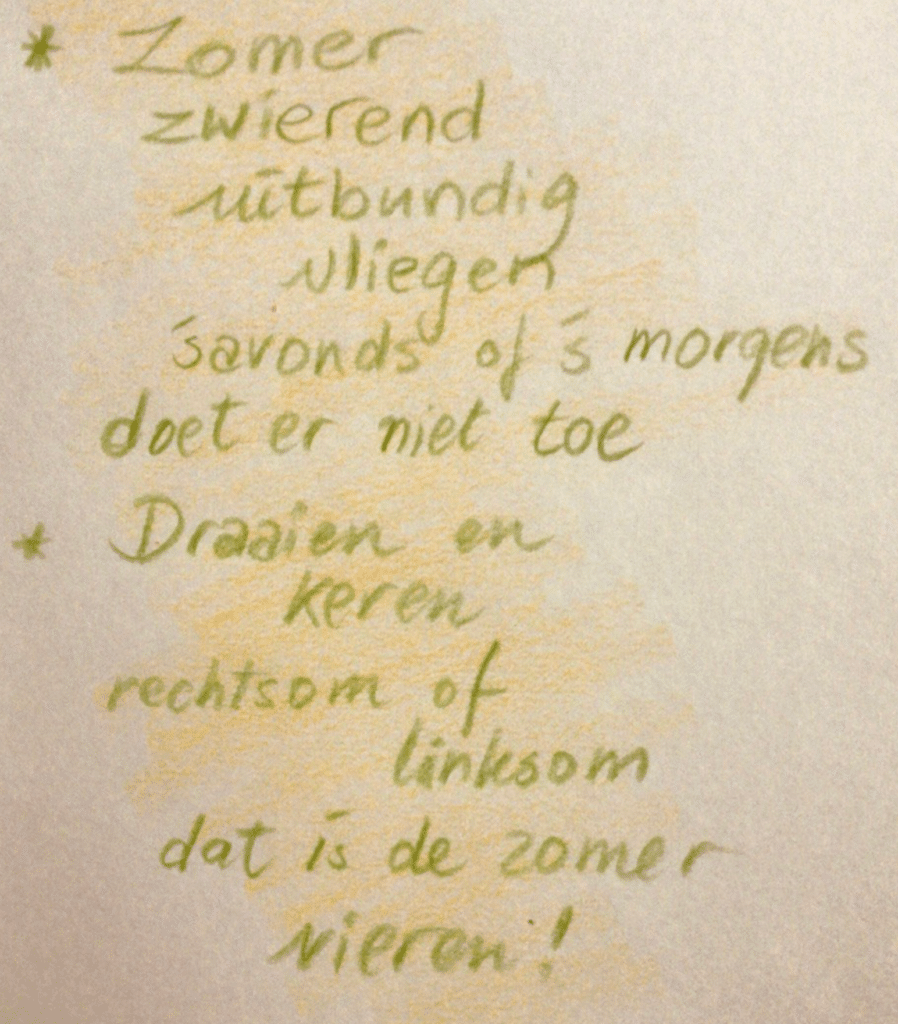 * Zomer
zwierend
uitbundig
vliegen
'savonds of 's morgens
doet er niet toe
* Draaien en
keren
rechtsom of
linksom
dat is de zomer
vieren!